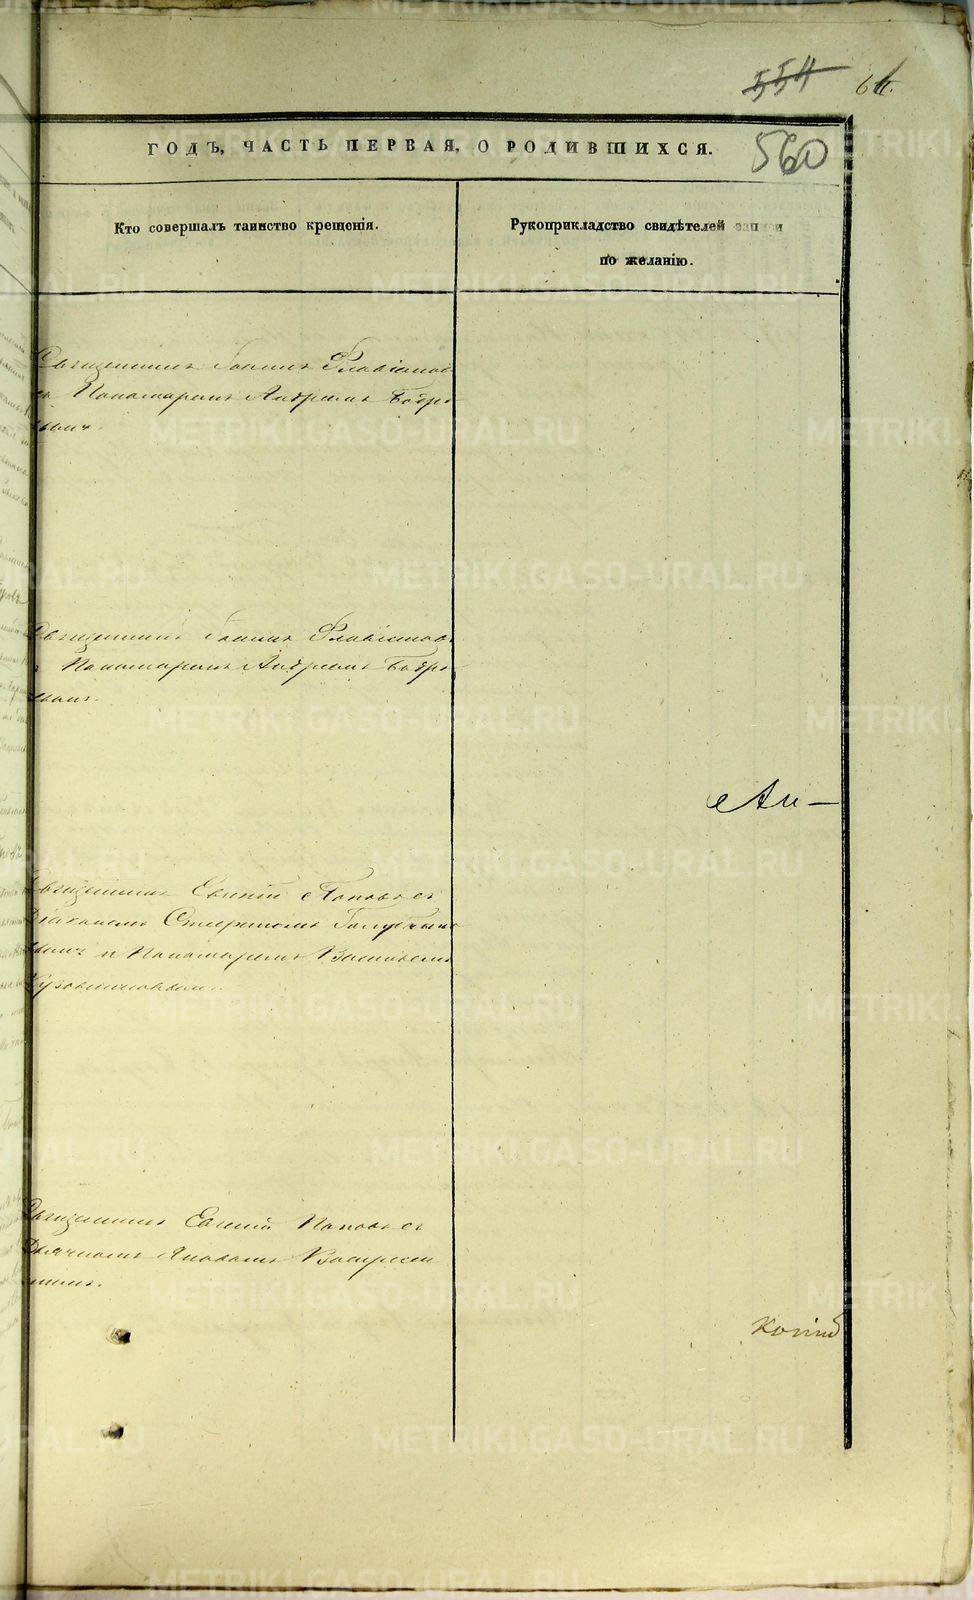 554 61.
ГОДЪ, ЧАСТЬ ПЕРВАЯ, О РОДИВШИХСЯ. 560
Кто совершалъ таинство крещенія.
Рукоприкладство свидѣтелей записи
по желанію.
Священникъ Іоаннъ Флавіановъ
съ Пономаремъ Андреемъ Бобро-
вымъ.
Священникъ Іоаннъ Флавіановъ
Пономаремъ Андреемъ Бобро-
вымъ.
Ап—
Священникъ Евгеній Поповъ съ
Діакономъ
и Пономаремъ Василіемъ
Священникъ Евгеній Поповъ съ
Дьячкомъ
Копія
METRIKI.GASO-URAL.RU